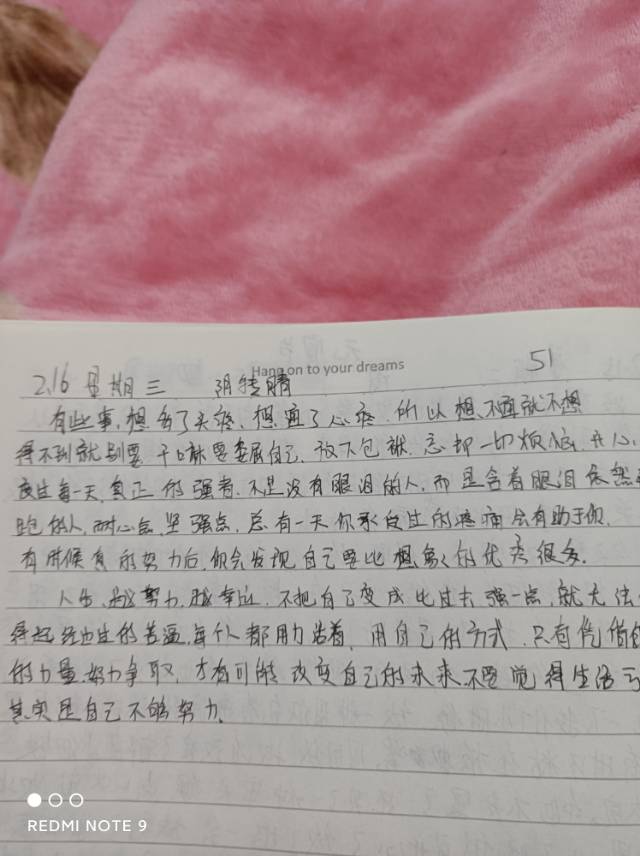 Hang on to your dreams
51
2.16 星期三 阴转晴
有些事,想多了头疼,想通了心疼.所以想不通就不想
得不到就别要.干嘛要委屈自己.放下包袱.忘却一切烦恼.开心.
度过每一天.真正的强者.不是没有眼泪的人.而是含着眼泪依然
跑的人.耐心点.坚强点.总有一天你承受过的疼痛会有助于你.
有时候真的努力后.你会发现自己要比想象的优秀很多.
人生.越努力.越幸运.不把自己变成比过去强一点,就无法
得起经历过的苦逼.每个人都用力活着.用自己的方式.只有凭借
的力量努力争取.才有可能改变自己的未来不要觉得生活
其实是自己不够努力.
REDMI NOTE 9